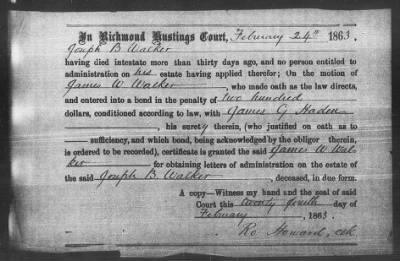 In Richmond Hustings Court, February 24th 1863.
Joseph B Walker
having died intestate more than thirty days ago, and no person entitled to
administration on his estate having applied therefor; On the motion of
James W Walker, who made oath as the law directs,
and entered into a bond in the penalty of two hundred
dollars, conditioned according to law, with James G Haden
, his surety therein, (who justified on oath as to
sufficiency, and which bond, being acknowledged by the obligor therein,
is ordered to be recorded), certificate is granted the said James W. Wal-
ker for obtaining letters of administration on the estate of
the said Joseph B. Walker, deceased, in due form.
A copy—Witness my hand and the seal of said
Court this twenty fourth day of
February, 1863.
Ro Howard, clk